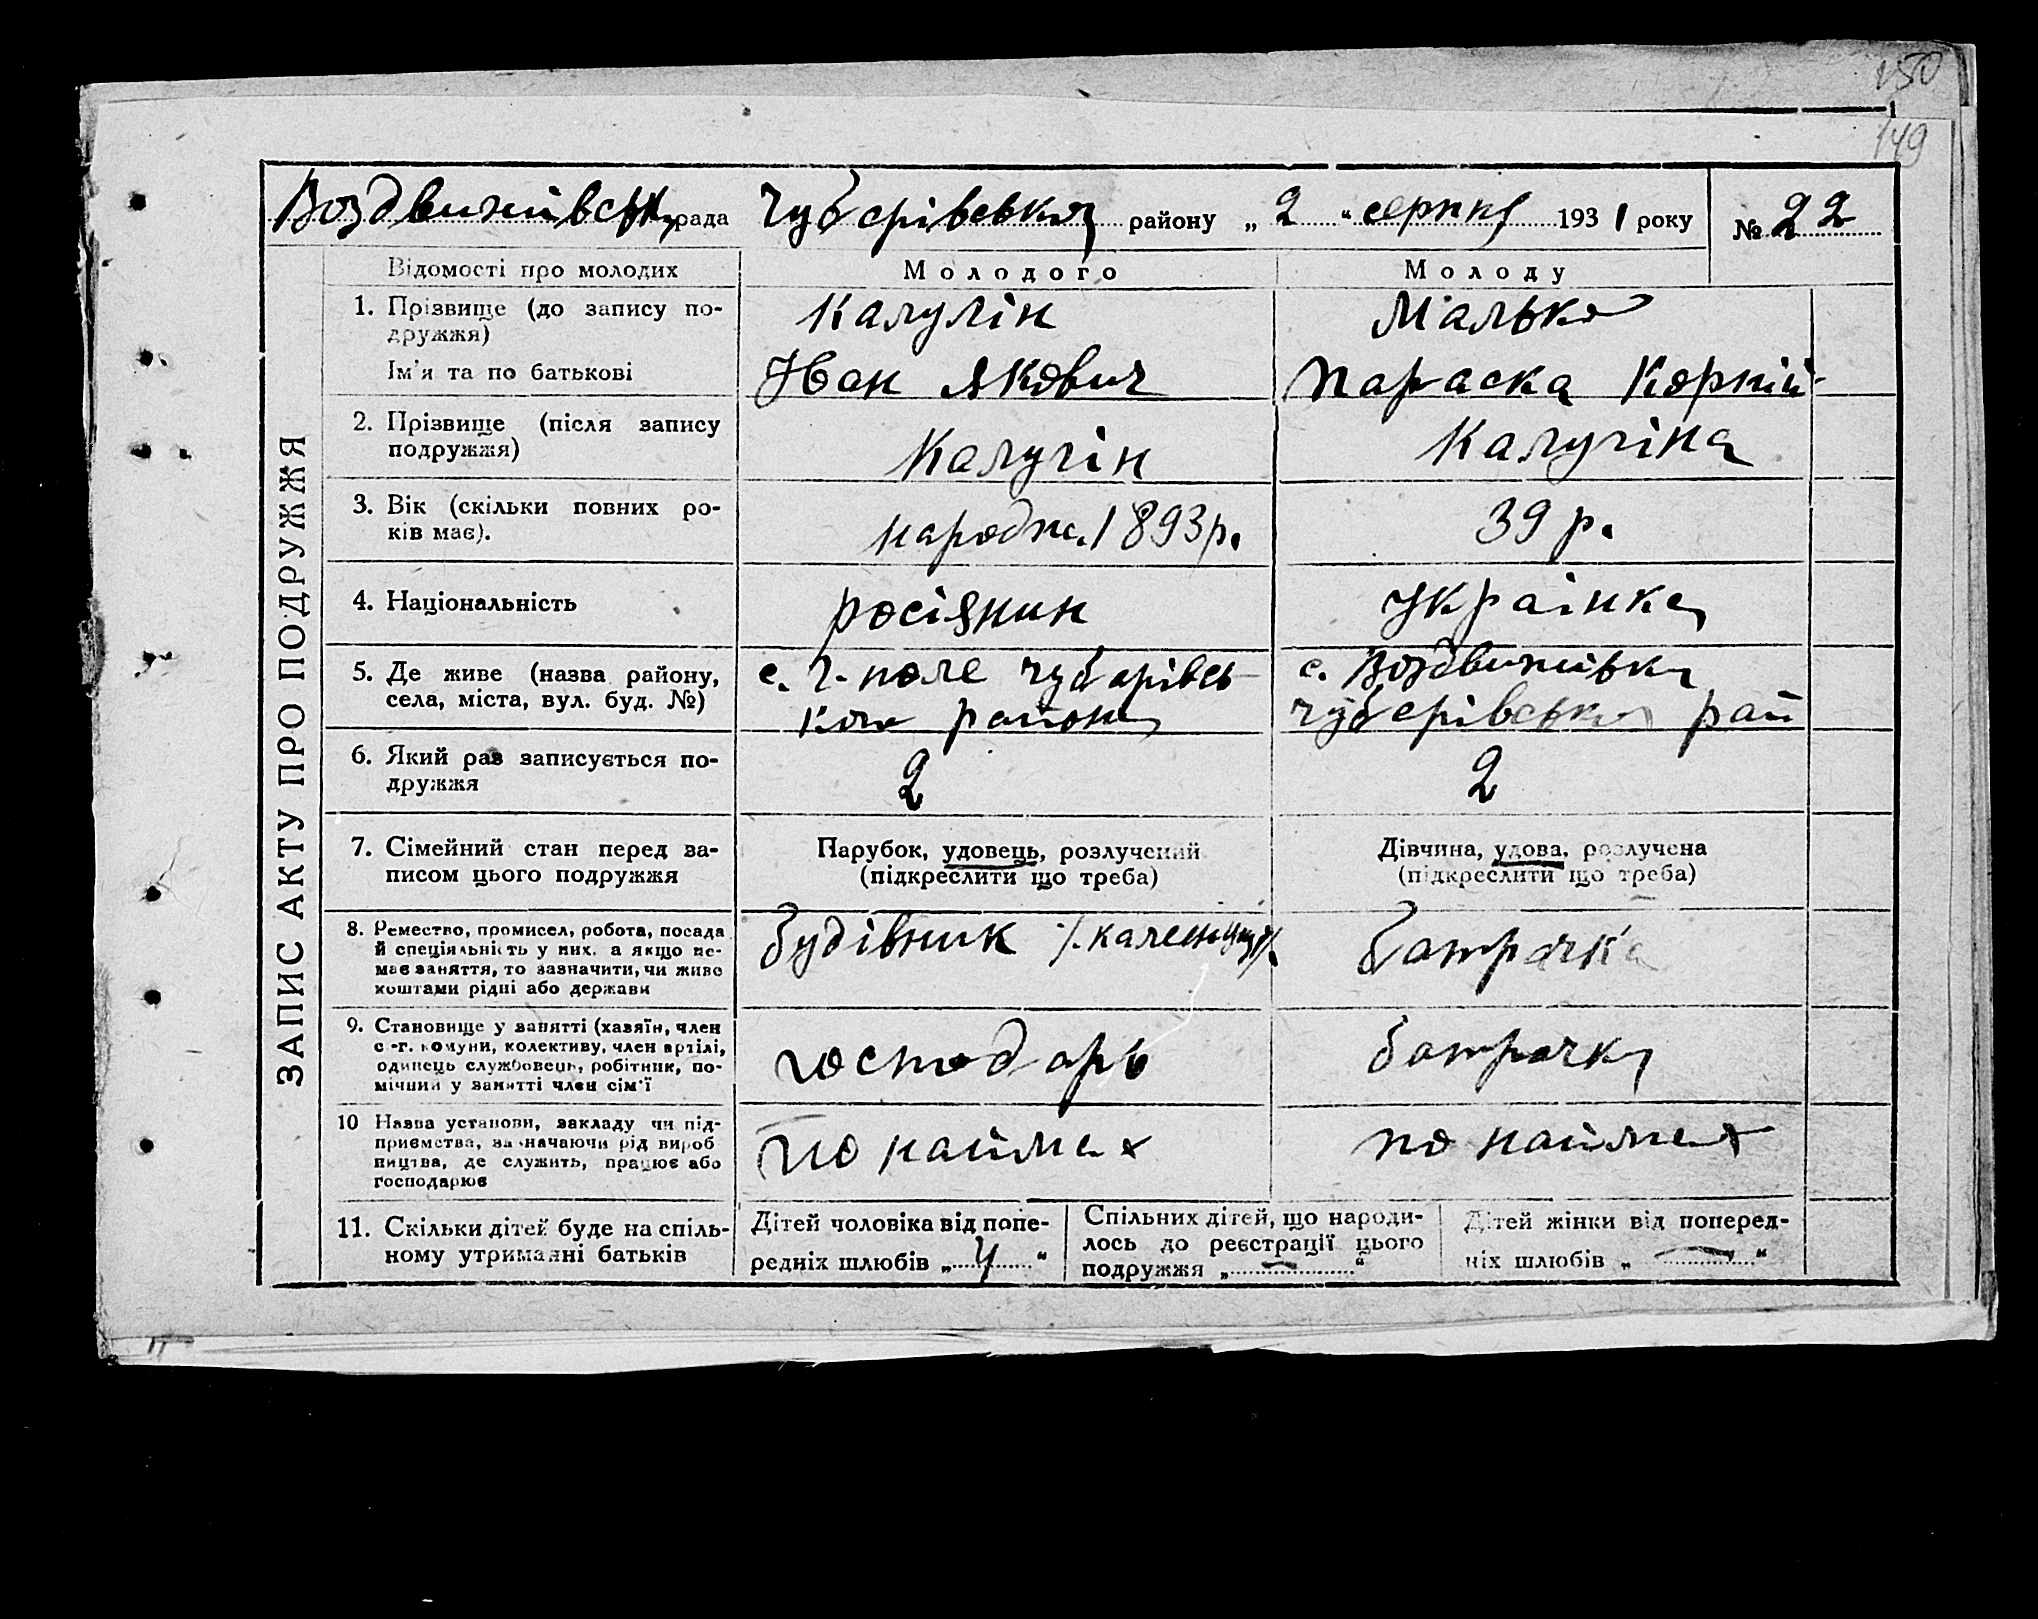 150
149
Воздвижівська рада Чубарівського району „ 2 “ серпня 1931 року № 22
ЗАПИС АКТУ ПРО ПОДРУЖЖЯ
Відомості про молодих Молодого Молоду
1. Прізвище (до запису по-
дружжя)
Калугін Малько
Ім'я та по батькові
Іван Якович Параска Корній-
2. Прізвище (після запису
подружжя)
Калугін Калугіна
3. Вік (скільки повних ро-
ків має).
народж. 1893 р. 39 р.
4. Національність росіянин Українка
5. Де живе (назва району,
села, міста, вул. буд. №)
с. Г-поле Чубарівсь-
кого району
с. Воздвижівка
Чубарівського рай
6. Який раз записується по-
дружжя
2 2
7. Сімейний стан перед за-
писом цього подружжя
Парубок, удовець, розлучений
(підкреслити що треба)
Дівчина, удова, розлучена
(підкреслити що треба)
8. Ремество, промисел, робота, посада
й спеціяльність у них, а якщо не-
має заняття, то зазначити, чи живе
коштами рідні або держави
будівник батрачка
9. Становище у занятті (хазяїн, член
с.-г. комуни, колективу, член артілі,
одинець службовець, робітник, по-
мічний у занятті член сім'ї
господарь батрачка
10 Назва установи, закладу чи під-
приємства, зазначаючи рід вироб
ництва, де служить, працює або
господарює
по наймах по наймах
11. Скільки дітей буде на спіль-
ному утриманні батьків
Дітей чоловіка від попе-
редніх шлюбів „ 4 “
Спільних дітей, що народи-
лось до реєстрації цього
подружжя „ — “
Дітей жінки від поперед-
ніх шлюбів „ — “